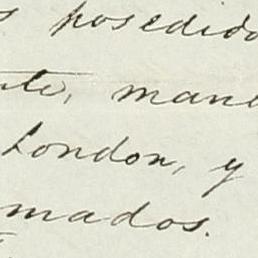 s posedido
nte, mane
London, y
mados.